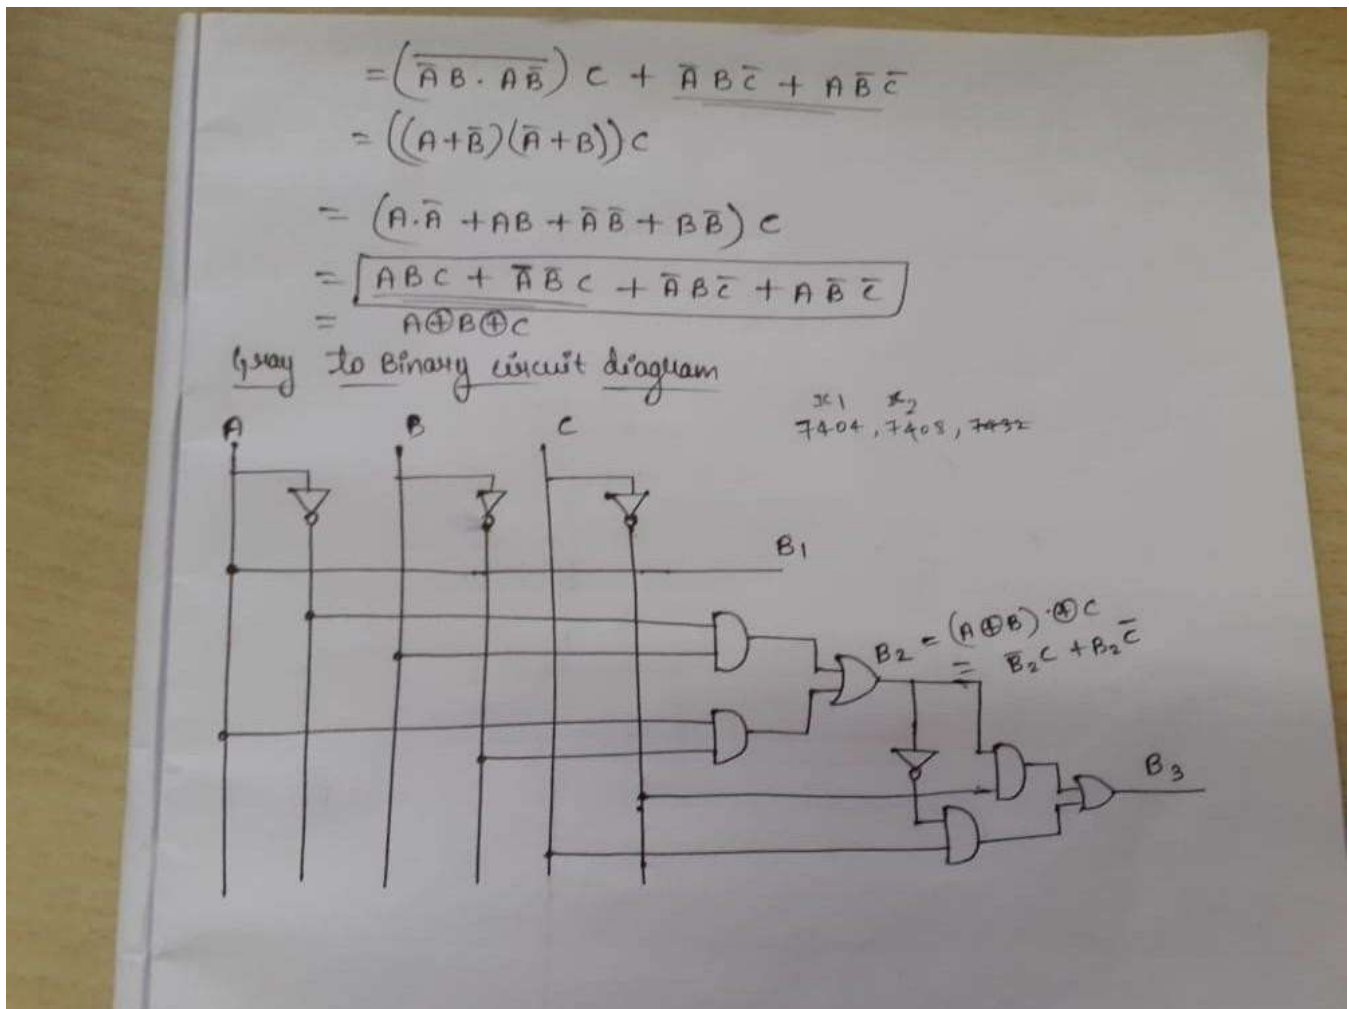 = (\overline{A̅ B . A B̅}) C + A̅ B C̅ + A B̅ C̅
= ((A + B̅)(A̅ + B)) C
= (A.A̅ + AB + A̅ B̅ + B B̅) C
= A B C + A̅ B̅ C + A̅ B C̅ + A B̅ C̅
= A⊕B⊕C
Gray to Binary circuit diagram
x1 x2
7404, 7408, 7432
A B C
B1
B2 = (A⊕B).⊕C
= B̅2 C + B2 C̅
B3